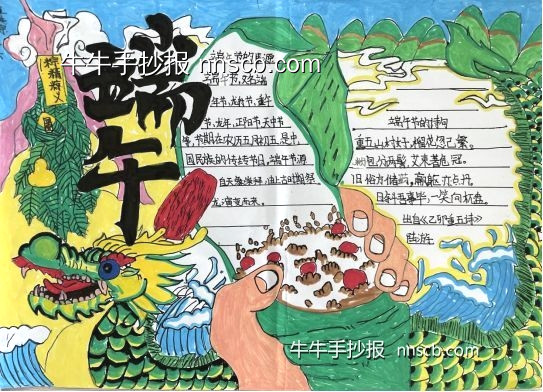 牛牛手抄报 nhscb.com
牛牛手抄报 nnscb.com
端午
端午节的来源
端午节，又称端
午节、龙舟节、重午
节、龙年、正阳节、天中节
等，节期在农历五月初五，是中
国民族的传统节日，端午节源
自天象崇拜，由上古时期祭
龙演变而来。
端午节的诗句
重五山村好，榴花忽已繁。
粽包分两髻，艾束著危冠。
旧俗方储药，羸躯亦点丹。
日斜吾事毕，一笑向杯盘。
出自《乙卯重五诗》
陆游
牛牛手抄报 nhscb.com